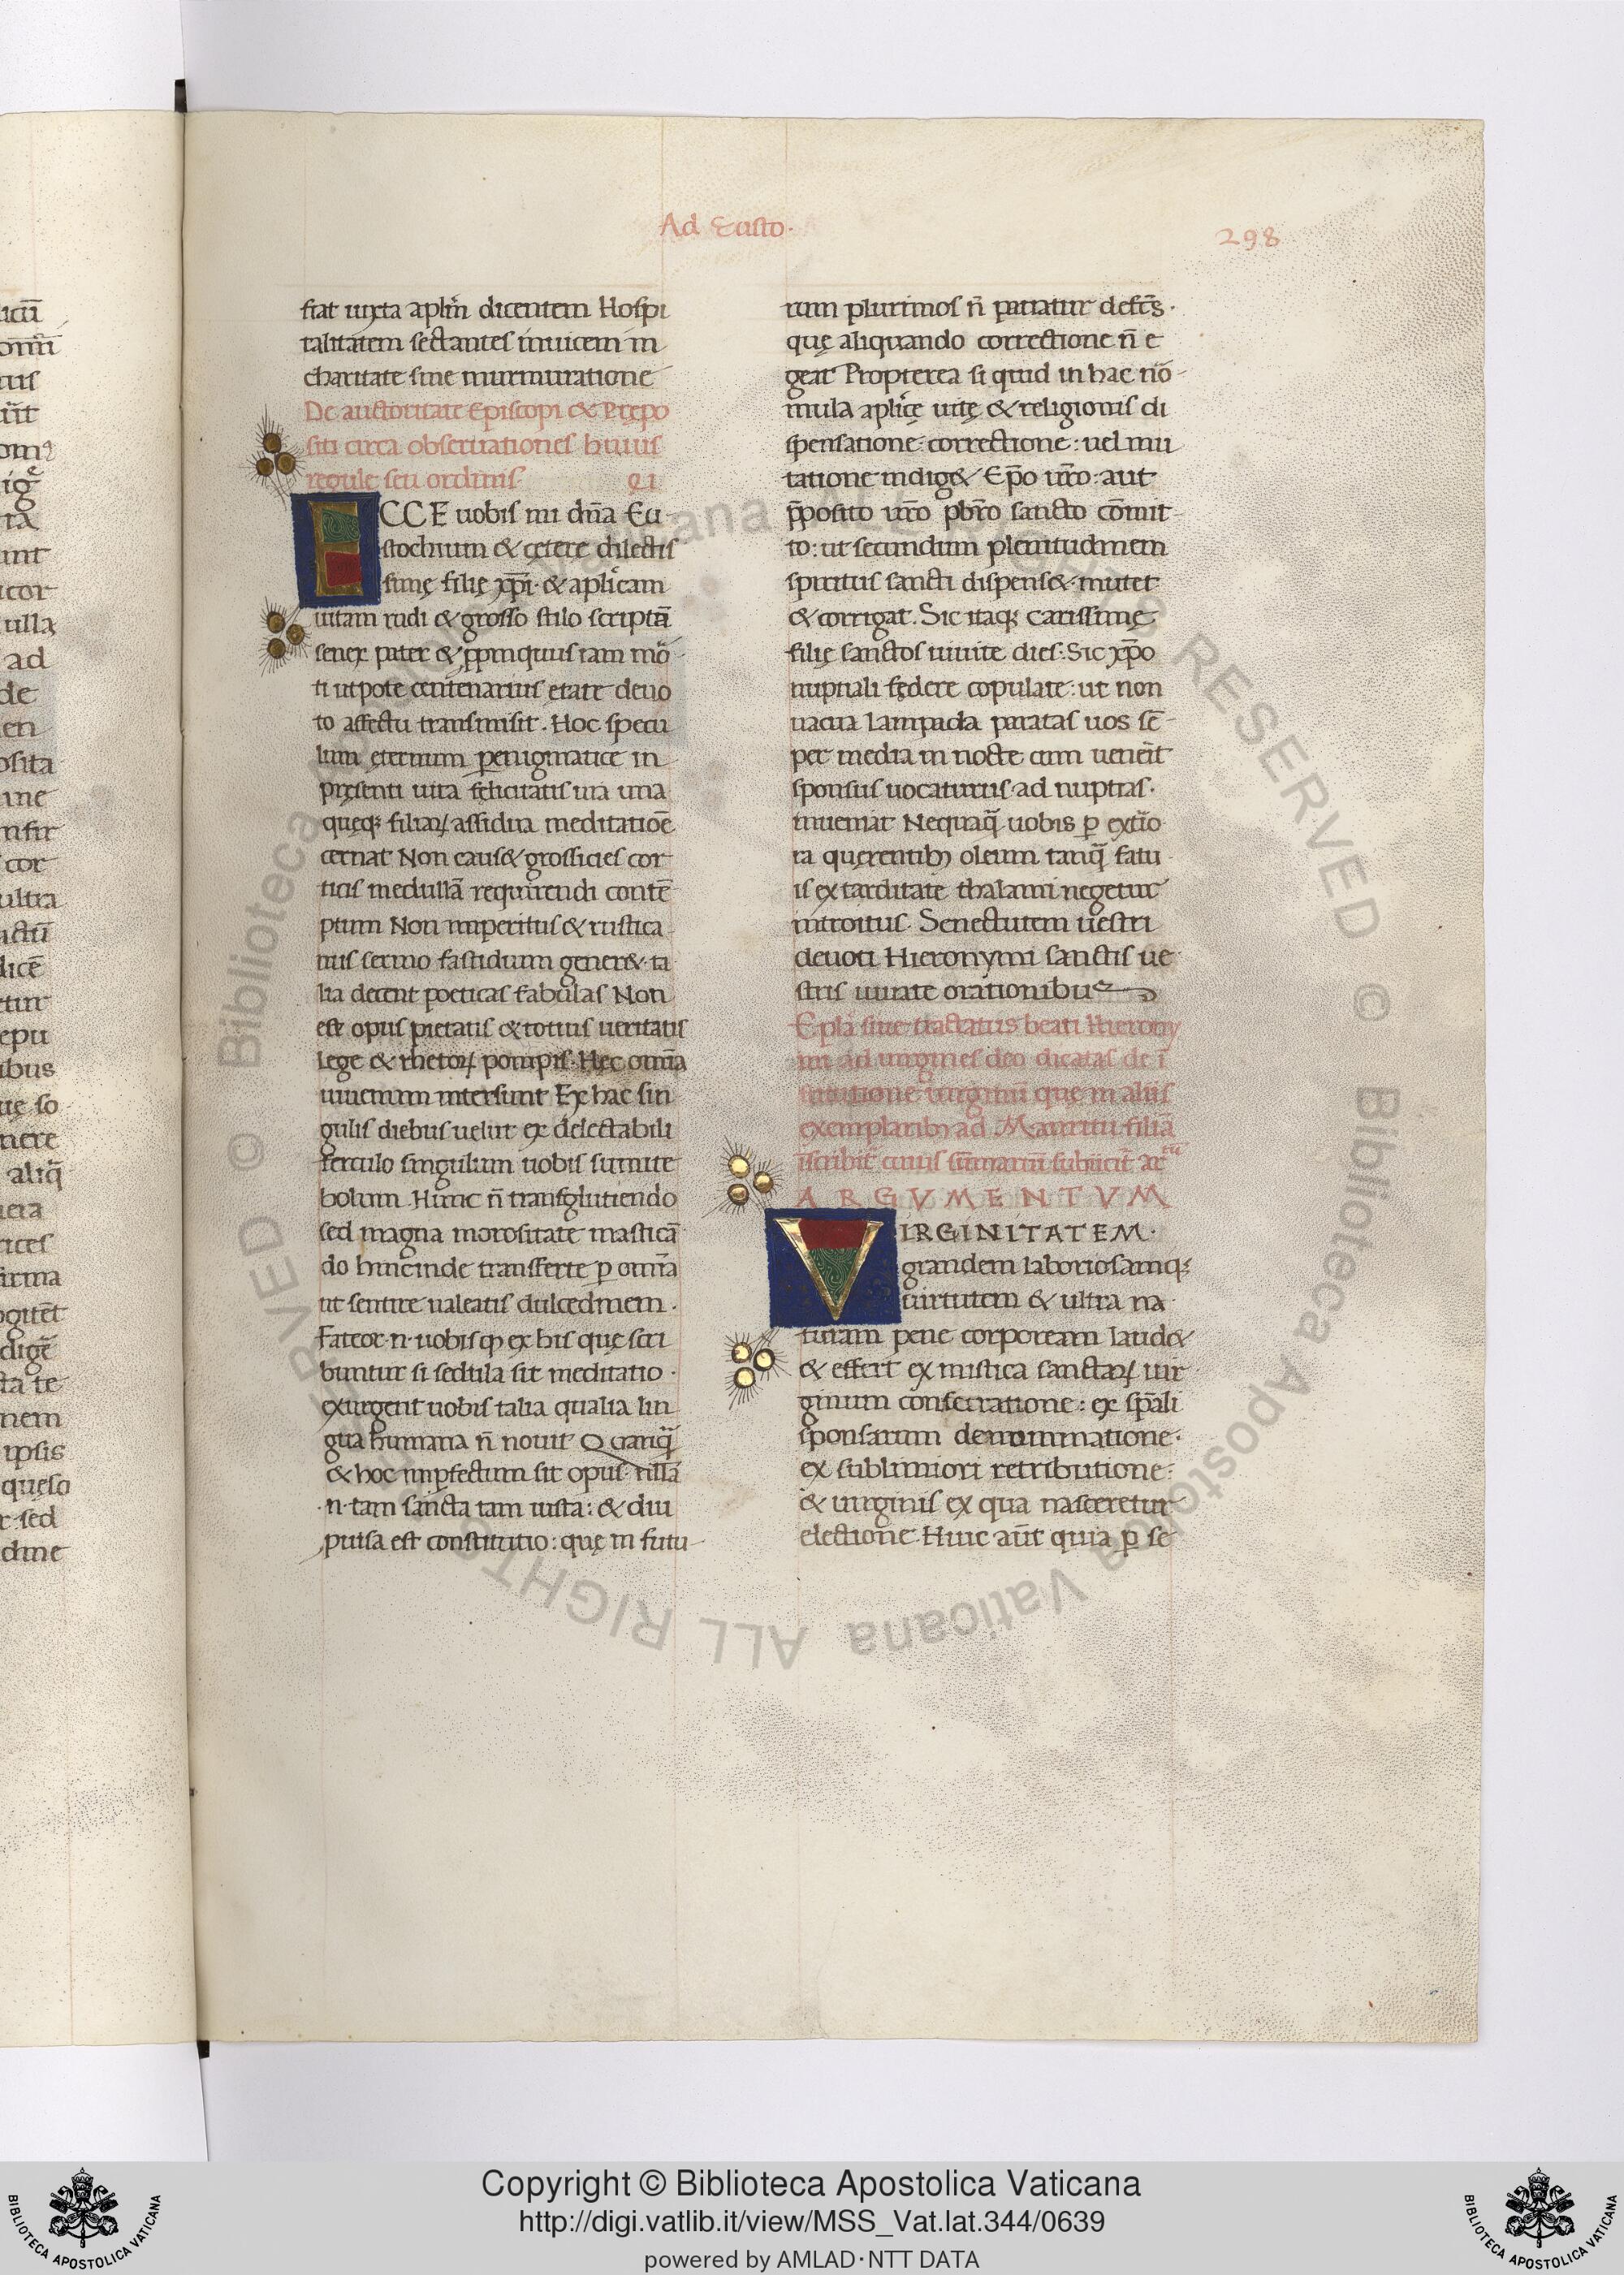 Ad Eusto.
298
fiat iuxta aplm̄ dicentem Hospi
talitatem sectantes inuicem in
charitate sine murmuratione
De auctoritate Episcopi & Prępo
siti circa obseruationes huius
regule seu ordinis
ECCE uobis mi dn̄a Eu-
stochium & cętere dilectis
simę filię xp̄i & aplicam
uitam rudi & grosso stilo scriptā
senex pater & ꝓpinquus iam mor-
ti utpote centenarius etate deuo
to affectu transmisit. Hoc specu
lum ęternum per enigmatice in
pręsenti uita fęlicitatis una una
quęq; filiaꝝ assidua meditatiōe
cernat Non causet grossicies cor
ticis medullā requirendi contē
ptum Non imperitus & rustica-
nus sermo fastidium generet ta
lia decent poeticas fabulas Non
est opus pietatis & totius ueritatis
lege & rhetoꝝ pompis. Hęc omīa
iuuenum intersunt Ex hac sin
gulis diebus uelut ex delectabili
ferculo singulum uobis sumite
bolum. Hunc n̄ transglutiendo
sed magna morositate masticā
do hincinde transferte ꝑ omīa
ut sentire ualeatis dulcedinem.
Fateor .n. uobis ꝙ ex his quę scri
buntur si sedula sit meditatio.
exurgent uobis talia qualia lin
gua humana n̄ nouit Quanq̄
& hoc imꝑfectum sit opus. nulla
.n. tam sancta tam iusta: & diu
pulsa est constitutio: quę in futu-
rum plurimos n̄ patiatur defect̄s.
quę aliquando correctione n̄ e
geat Propterea si quid in hac nor-
mula aplicę uitę & religionis di
spensatione: correctione: uel mu
tatione indiget Ep̄o ur̄o aut
p̄posito ur̄o pb̄ro sancto cōmit-
to: ut secundum plenitudinem
spiritus sancti dispenset mutet
& corrigat. Sic itaq; carissime
filię sanctos uiuite dies: Sic xp̄o
nuptiali fędere copulate: ut non
uacua lampada paratas uos sē-
per media in nocte cum uenerit
sponsus uocaturus ad nuptias.
inueniat Nequaq̄ uobis ꝑ exterio
ra quęrentibꝫ oleum tanq̄ fatu
is ex tarditate thalami negetur
introitus. Senectutem uestri
deuoti Hieronymi sanctis ue
stris iuuate orationibus
Epla siue tractatus beati Hierony
mi ad uirgines deo dicatas de ī
stitutione uirginū quę in aliis
exemplaribꝫ ad Mauritii filiā
īscribit̄ cuius sūmariū subiicit̄ ar
tū
ARGVMENTVM
VIRGINITATEM.
grandem laboriosamq;
uirtutem & ultra na
turam pene corpoream laudet
& effert ex mistica sanctaꝝ uir
ginum consecratione: ex sp̄ali
sponsarum denominatione.
ex sublimiori retributione:
& uirginis ex qua nasceretur
electione. Huic aūt quia ꝑ se
Copyright © Biblioteca Apostolica Vaticana
http://digi.vatlib.it/view/MSS_Vat.lat.344/0639
powered by AMLAD·NTT DATA